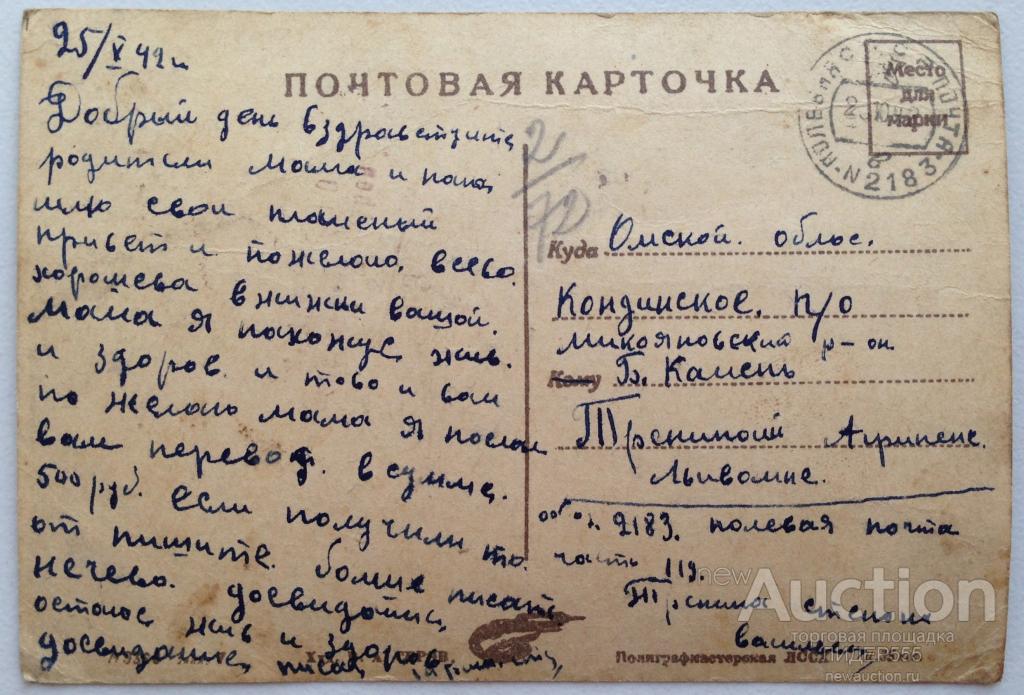 25/V 42 г
ПОЧТОВАЯ КАРТОЧКА
Добрый день вздравствуите
родители мама и папа
шлю свои пламеный
привет и пожелаю. всево.
хорошева вжижни вашой.
мама я нахожусь жив.
и здоров. и тово и вам
по желаю мама я послал
вам перевод. всумме.
500 руб. если получили то
от пишите. больше писать
нечево. досвидания
остаюс жив и здоров
досвидание, писал
2/72
Место
для
марки
ПОЧТА
N 2183
Куда Омской. облос.
Кондинское. п/о
микояновский р-он
Кому Б. Камень
Трениной Агрипене.
Львовне.
обр. 2183. полевая почта
часть 119.
Тренина степана
васильев
Полиграфмастерская
newAuction
торговая площадка
ЛИДЕР555
newauction.ru